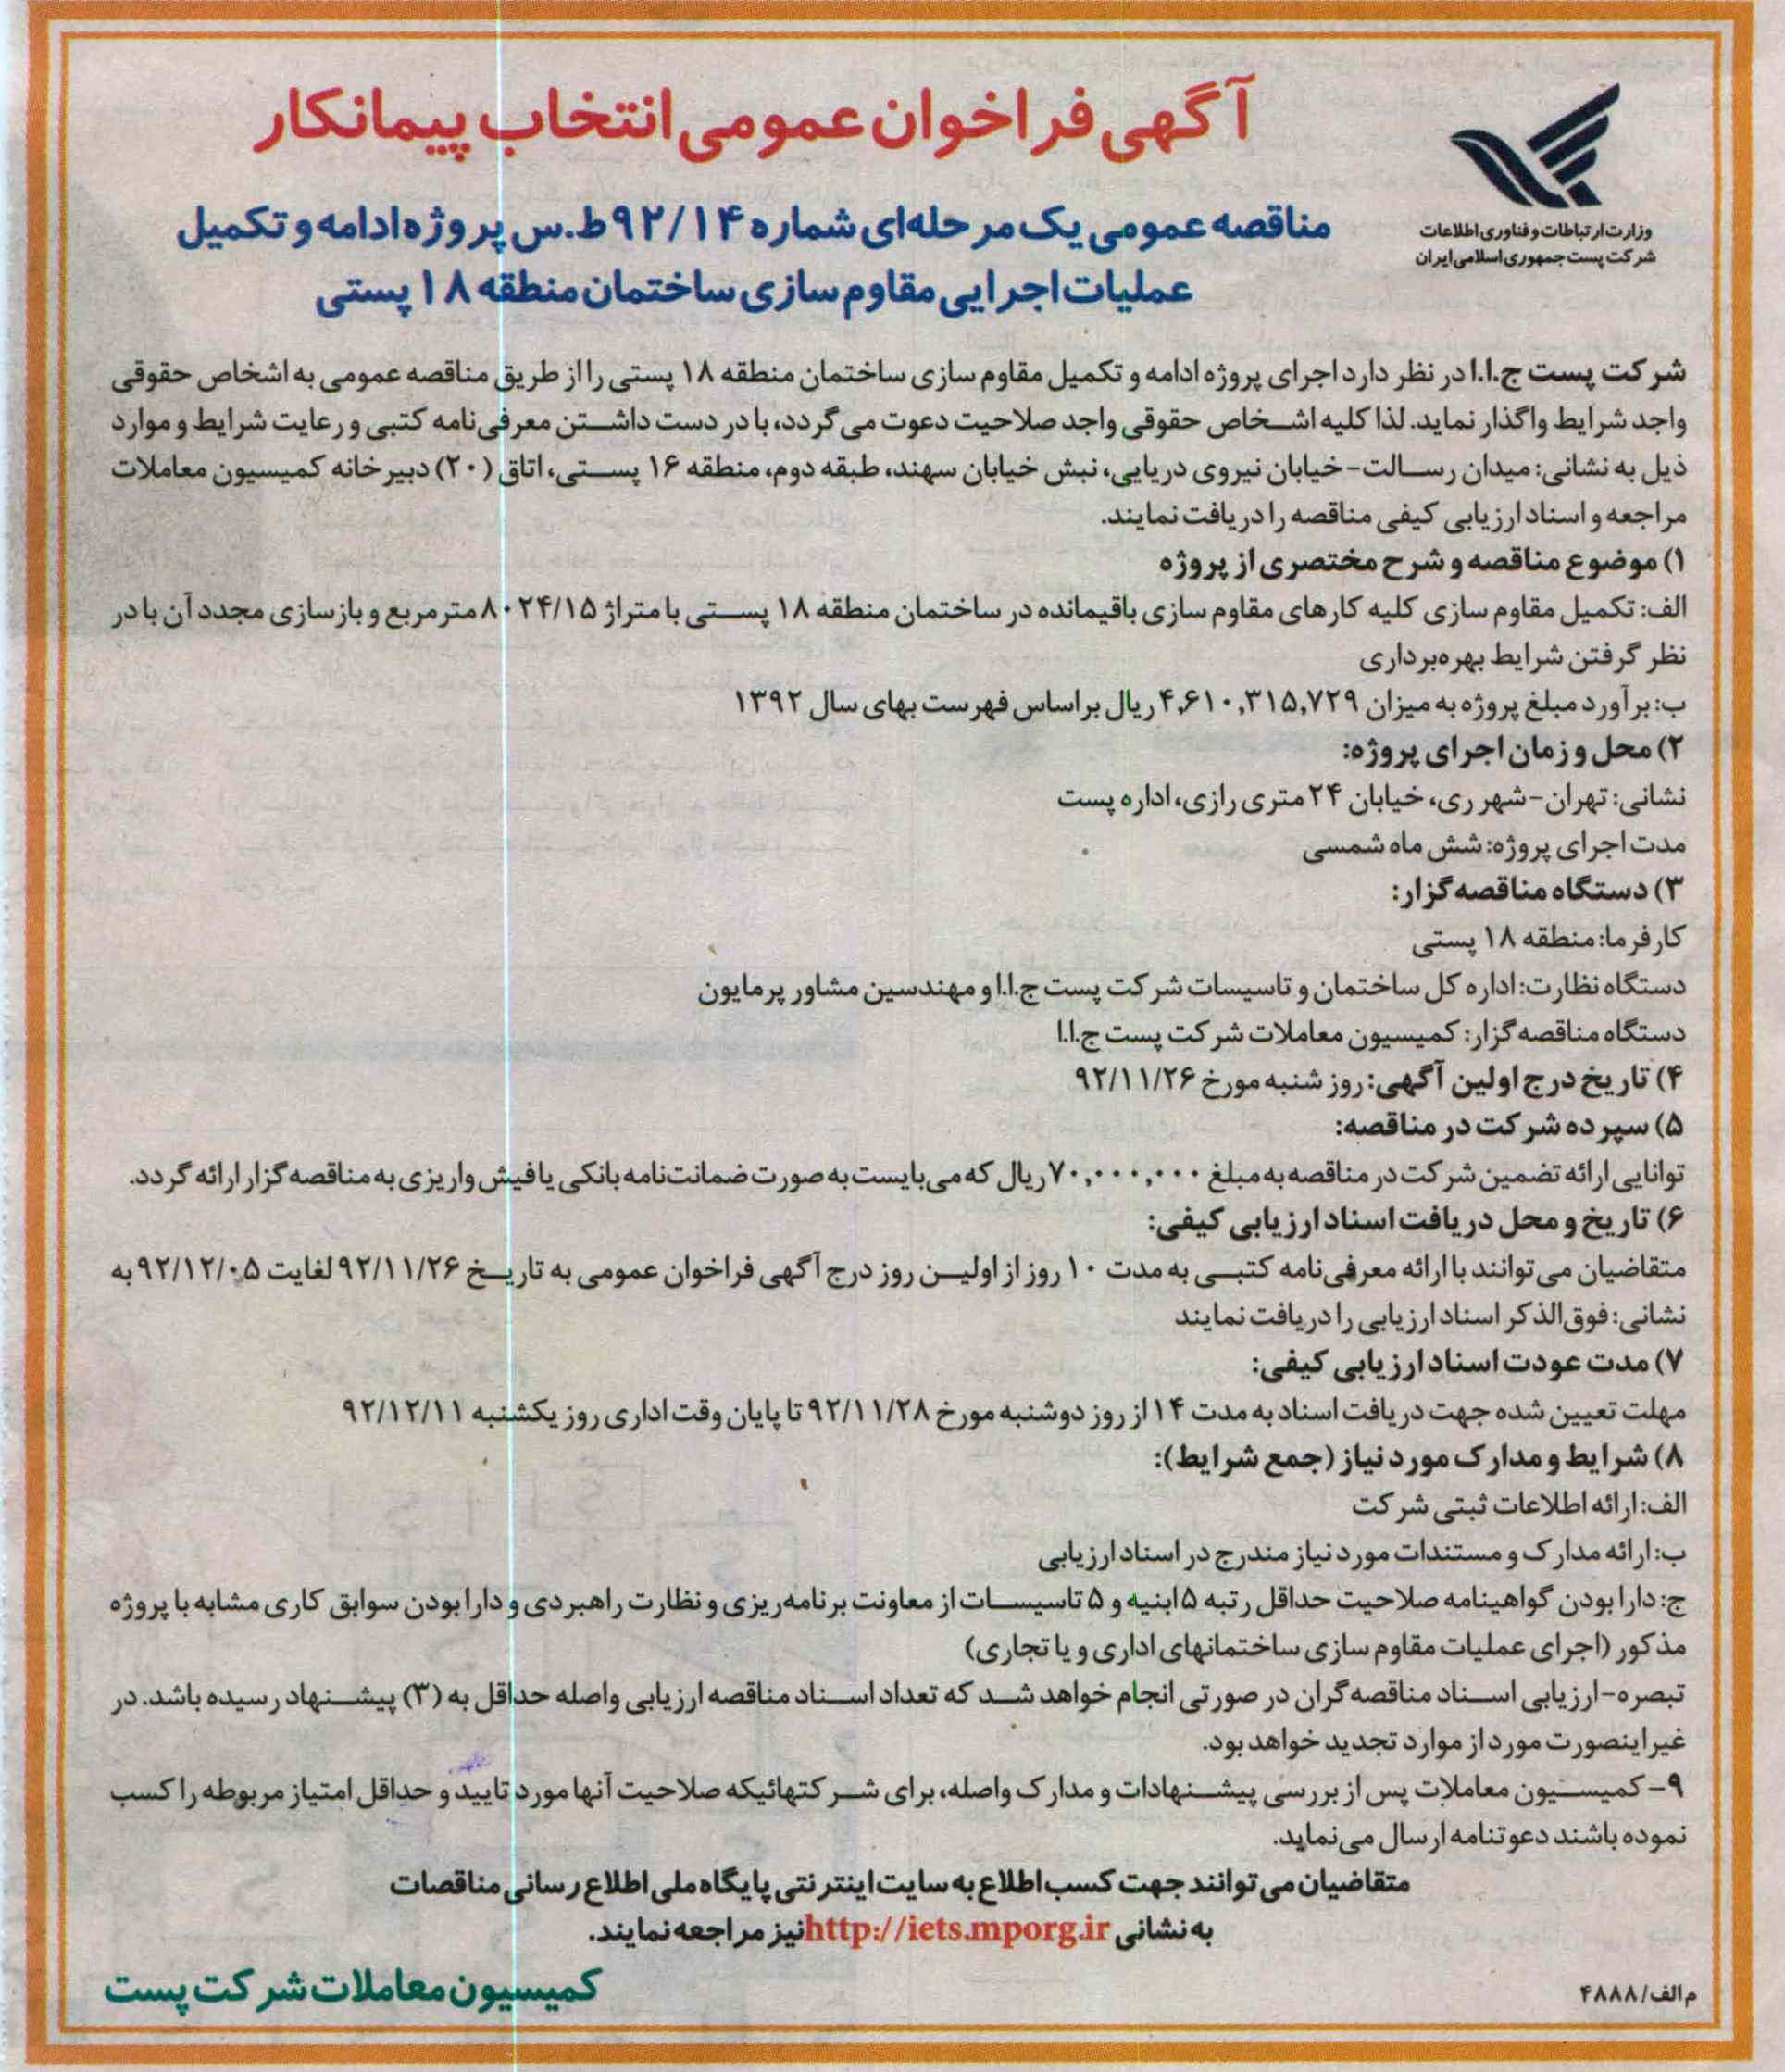 آگهی فراخوان عمومی انتخاب پیمانکار
وزارت ارتباطات و فناوری اطلاعات
شرکت پست جمهوری اسلامی ایران
مناقصه عمومی یک مرحله‌ای شماره ۹۲/۱۴ط.س پروژه ادامه و تکمیل
عملیات اجرایی مقاوم سازی ساختمان منطقه ۱۸ پستی
شرکت پست ج.ا.ا در نظر دارد اجرای پروژه ادامه و تکمیل مقاوم سازی ساختمان منطقه ۱۸ پستی را از طریق مناقصه عمومی به اشخاص حقوقی
واجد شرایط واگذار نماید. لذا کلیه اشخاص حقوقی واجد صلاحیت دعوت می‌گردد، با در دست داشتن معرفی‌نامه کتبی و رعایت شرایط و موارد
ذیل به نشانی: میدان رسالت-خیابان نیروی دریایی، نبش خیابان سهند، طبقه دوم، منطقه ۱۶ پستی، اتاق (۲۰) دبیرخانه کمیسیون معاملات
مراجعه و اسناد ارزیابی کیفی مناقصه را دریافت نمایند.
۱) موضوع مناقصه و شرح مختصری از پروژه
الف: تکمیل مقاوم سازی کلیه کارهای مقاوم سازی باقیمانده در ساختمان منطقه ۱۸ پستی با متراژ ۸۰۲۴/۱۵ مترمربع و بازسازی مجدد آن با در
نظر گرفتن شرایط بهره‌برداری
ب: برآورد مبلغ پروژه به میزان ۴,۶۱۰,۳۱۵,۷۲۹ ریال براساس فهرست بهای سال ۱۳۹۲
۲) محل و زمان اجرای پروژه:
نشانی: تهران-شهر ری، خیابان ۲۴ متری رازی، اداره پست
مدت اجرای پروژه: شش ماه شمسی
۳) دستگاه مناقصه گزار:
کارفرما: منطقه ۱۸ پستی
دستگاه نظارت: اداره کل ساختمان و تاسیسات شرکت پست ج.ا.ا و مهندسین مشاور پرمایون
دستگاه مناقصه گزار: کمیسیون معاملات شرکت پست ج.ا.ا
۴) تاریخ درج اولین آگهی: روز شنبه مورخ ۹۲/۱۱/۲۶
۵) سپرده شرکت در مناقصه:
توانایی ارائه تضمین شرکت در مناقصه به مبلغ ۷۰,۰۰۰,۰۰۰ ریال که می‌بایست به صورت ضمانت‌نامه بانکی یا فیش واریزی به مناقصه گزار ارائه گردد.
۶) تاریخ و محل دریافت اسناد ارزیابی کیفی:
متقاضیان می‌توانند با ارائه معرفی‌نامه کتبی به مدت ۱۰ روز از اولین روز درج آگهی فراخوان عمومی به تاریخ ۹۲/۱۱/۲۶ لغایت ۹۲/۱۲/۰۵ به
نشانی: فوق‌الذکر اسناد ارزیابی را دریافت نمایند
۷) مدت عودت اسناد ارزیابی کیفی:
مهلت تعیین شده جهت دریافت اسناد به مدت ۱۴ از روز دوشنبه مورخ ۹۲/۱۱/۲۸ تا پایان وقت اداری روز یکشنبه ۹۲/۱۲/۱۱
۸) شرایط و مدارک مورد نیاز (جمع شرایط):
الف: ارائه اطلاعات ثبتی شرکت
ب: ارائه مدارک و مستندات مورد نیاز مندرج در اسناد ارزیابی
ج: دارا بودن گواهینامه صلاحیت حداقل رتبه ۵ ابنیه و ۵ تاسیسات از معاونت برنامه‌ریزی و نظارت راهبردی و دارا بودن سوابق کاری مشابه با پروژه
مذکور (اجرای عملیات مقاوم سازی ساختمانهای اداری و یا تجاری)
تبصره-ارزیابی اسناد مناقصه گران در صورتی انجام خواهد شد که تعداد اسناد مناقصه ارزیابی واصله حداقل به (۳) پیشنهاد رسیده باشد. در
غیر اینصورت مورد از موارد تجدید خواهد بود.
۹- کمیسیون معاملات پس از بررسی پیشنهادات و مدارک واصله، برای شرکتهائیکه صلاحیت آنها مورد تایید و حداقل امتیاز مربوطه را کسب
نموده باشند دعوتنامه ارسال می‌نماید.
متقاضیان می‌توانند جهت کسب اطلاع به سایت اینترنتی پایگاه ملی اطلاع رسانی مناقصات
به نشانی http://iets.mporg.ir نیز مراجعه نمایند.
کمیسیون معاملات شرکت پست
م الف/۴۸۸۸